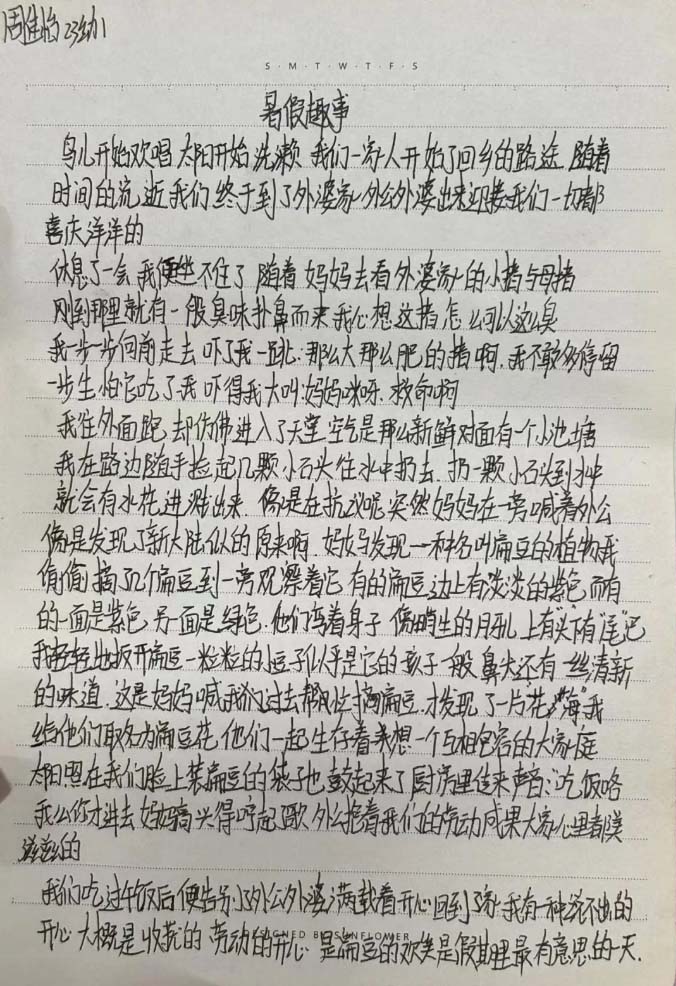 周佳怡 23幼1
S·M·T·W·T·F·S
暑假趣事
鸟儿开始欢唱 太阳开始洗漱 我们一家人开始了回乡的路途 随着
时间的流逝我们终于到了外婆家外公外婆出来迎接我们一切都
喜庆洋洋的
休息了一会 我便坐不住了 随着妈妈去看外婆家的小猪与母猪
刚到那里就有一般臭味扑鼻而来我心想这猪怎么可以这么臭
我一步一步向前走去 吓了我一跳:那么大那么肥的猪啊,我不敢多停留
一步生怕它吃了我 吓得我大叫:妈妈咪呀.救命啊
我往外面跑 却仿佛进入了天堂 空气是那么新鲜对面有一个小池塘
我在路边随手捡起几颗小石头往水中扔去.扔一颗小石头到水中
就会有水花进溅出来.像是在抗议呢 突然妈妈在一旁喊着外公
像是发现了新大陆似的原来啊.妈妈发现一种名叫扁豆的植物我
偷偷摘了几个扁豆到一旁观察着它 有的扁豆边上有淡淡的紫色 而有
的一面是紫色 另一面是绿色.他们弯着身子 像生的月牙儿上有"头"下有"尾"巴
我轻轻地扳开扁豆一粒粒的豆子似乎是它的孩子一般 鼻尖还有一丝清新
的味道.这是妈妈喊我们过去帮忙摘扁豆.才发现了一片"花海"我
给他们取名为扁豆花.他们一起生存着美想一个互相包容的大家庭
太阳照在我们脸上 装扁豆的袋子也鼓起来了 厨房里传来声音:吃饭咯
我么你才进去 妈妈高兴得哼起歌 外公抱着我们的劳动成果大家心里都美
滋滋的
我们吃过午饭后便告别了外公外婆 满载着开心回到了家 我有一种说不出的
开心 大概是收获的 劳动的开心 是扁豆的欢笑是假期里最有意思的一天.
GNED B SUNFLOWER